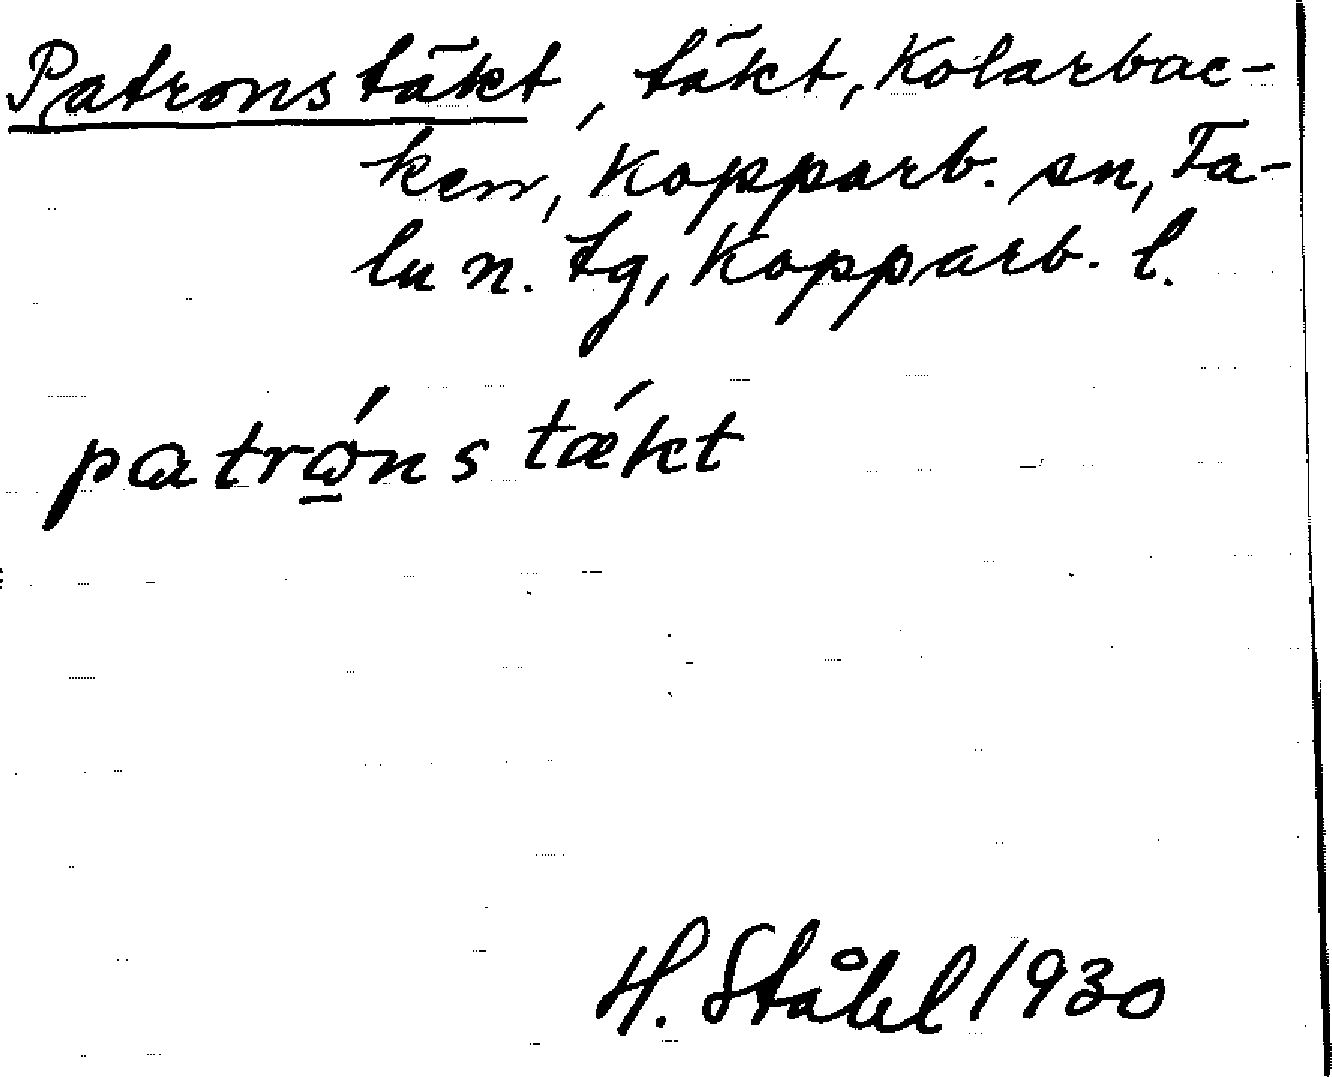 Patronstäkt, täkt, Kolarbac-
ken, Kopparb. sn, Fa-
lu n. tg, Kopparb. l.
patrón s tækt
H. Ståhl 1930